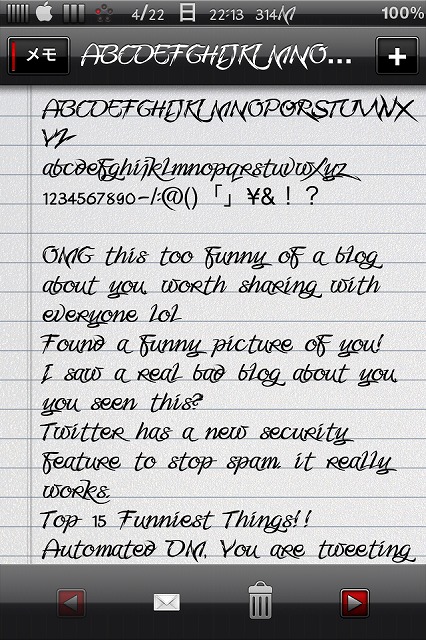 4/22 日 22:13 314M 100%
メモ ABCDEFGHIJKLMNO... +
ABCDEFGHIJKLMNOPQRSTUVWX
YZ
abcdefghijklmnopqrstuvwxyz
1234567890-/:@()「」¥&！？
OMG this too funny of a blog
about you worth sharing with
everyone lol
Found a funny picture of you!
I saw a real bad blog about you,
you seen this?
Twitter has a new security
feature to stop spam. it really
works.
Top 15 Funniest Things!!
Automated DM. You are tweeting